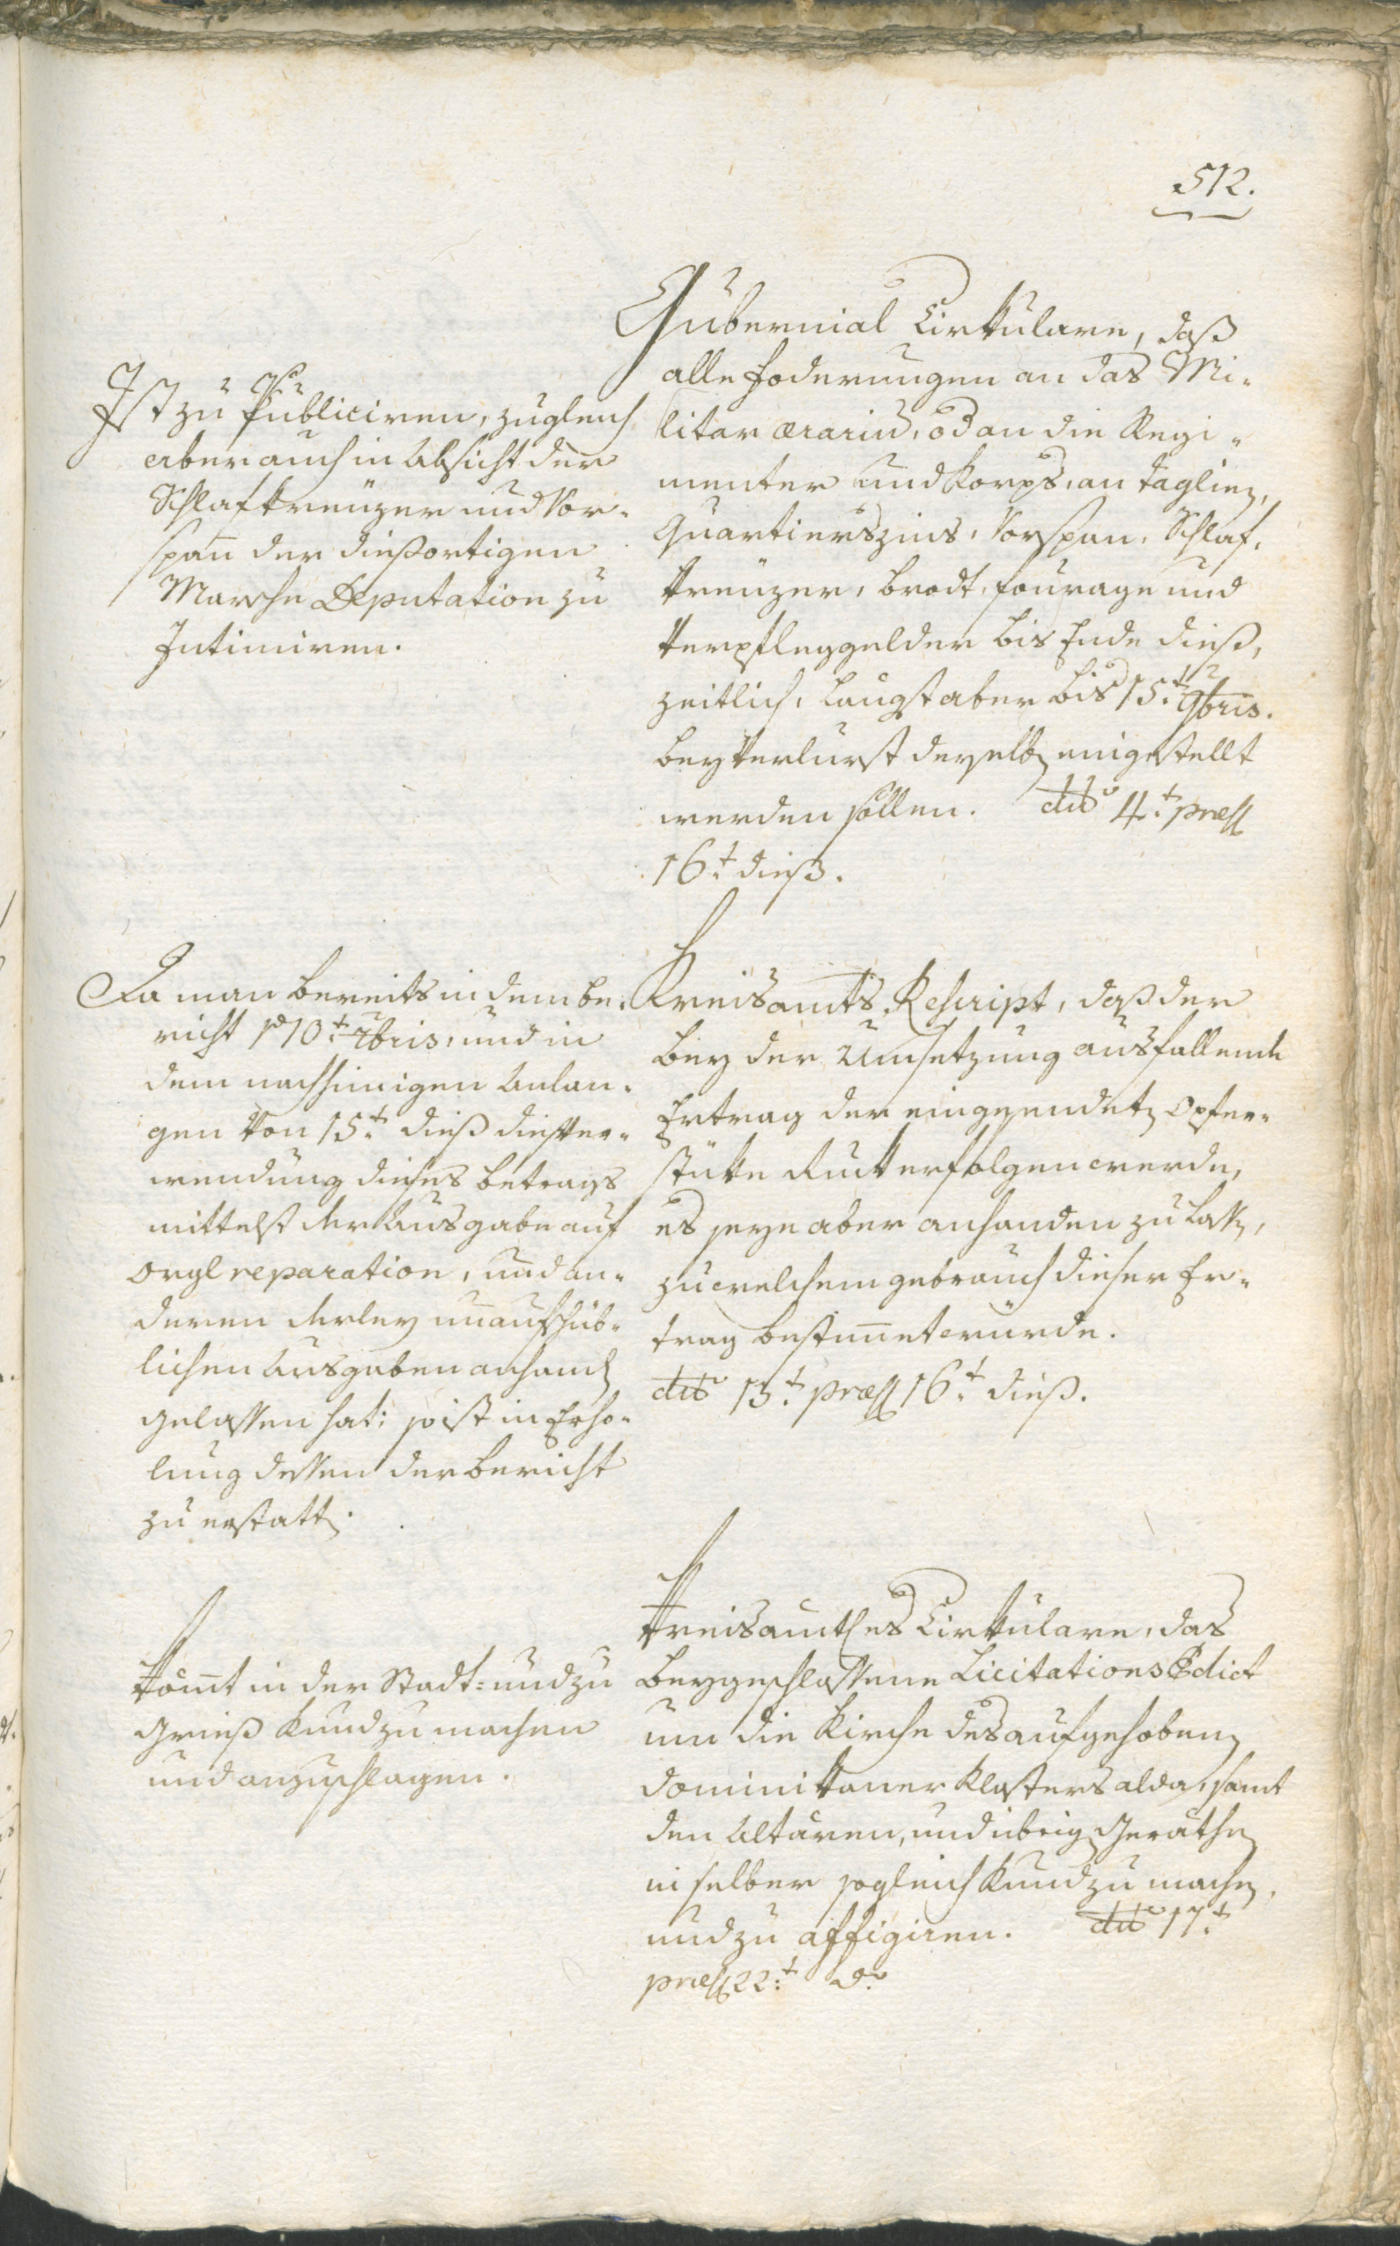 512.
Gubernial Cirkulare, daß
alle foderungen an das Mi-
litar ærariu, od an die Regi-
menter und Korps, an taglien,
Quartierszins, Vorspan, Schlaf-
kreuzer, brodt, fourage und
Verpfleggelder bis Ende dieß,
zeitlich, langst aber bis 15.t 9bris.
bey Verlurst derselb eingestellt
werden sollen. dto 4.t præs
16.t dieß.
Ist zu Publiciren, zugleich
aber auch in Absicht der
Schlafkreuzer und Vor-
span der dießortigen
Marche Deputation zu
Intimiren.
Kreisamts Rescript, daß der
bey der Umsetzung ausfallende
Ertrag der eingesendet Opfer-
stüke Ruckerfolgen werde,
es seye aber anhanden zu lass,
zu welchem gebrauch dieser Er-
trag bestimet wurde.
dto 13.t præs 16.t dieß.
Da man bereits in dem be-
richt 10.t 7bris, und in
dem nachhinigen Anlan-
gen von 15.t dieß die Ver-
wendung dieses betrags
mittelst der Ausgabe auf
Orgl reparation, und an-
deren derley unaufschüb-
lichen Ausgaben anhand
gelassen hat; so ist in Erho-
lung dessen der bericht
zu erstatt.
Kreisamtes Cirkulare, das
beygeschlossene Licitations Edict
um die Kirche des aufgehoben
Dominikaner Klosters alda, samt
den Altären, und übrig Geräthe
in selber sogleich kund zu mache,
und zu affigiren. dto 17.t
præs 22.t do
Komt in der Stadt- und zu
Grieß kund zu machen
und anzuschlagen.